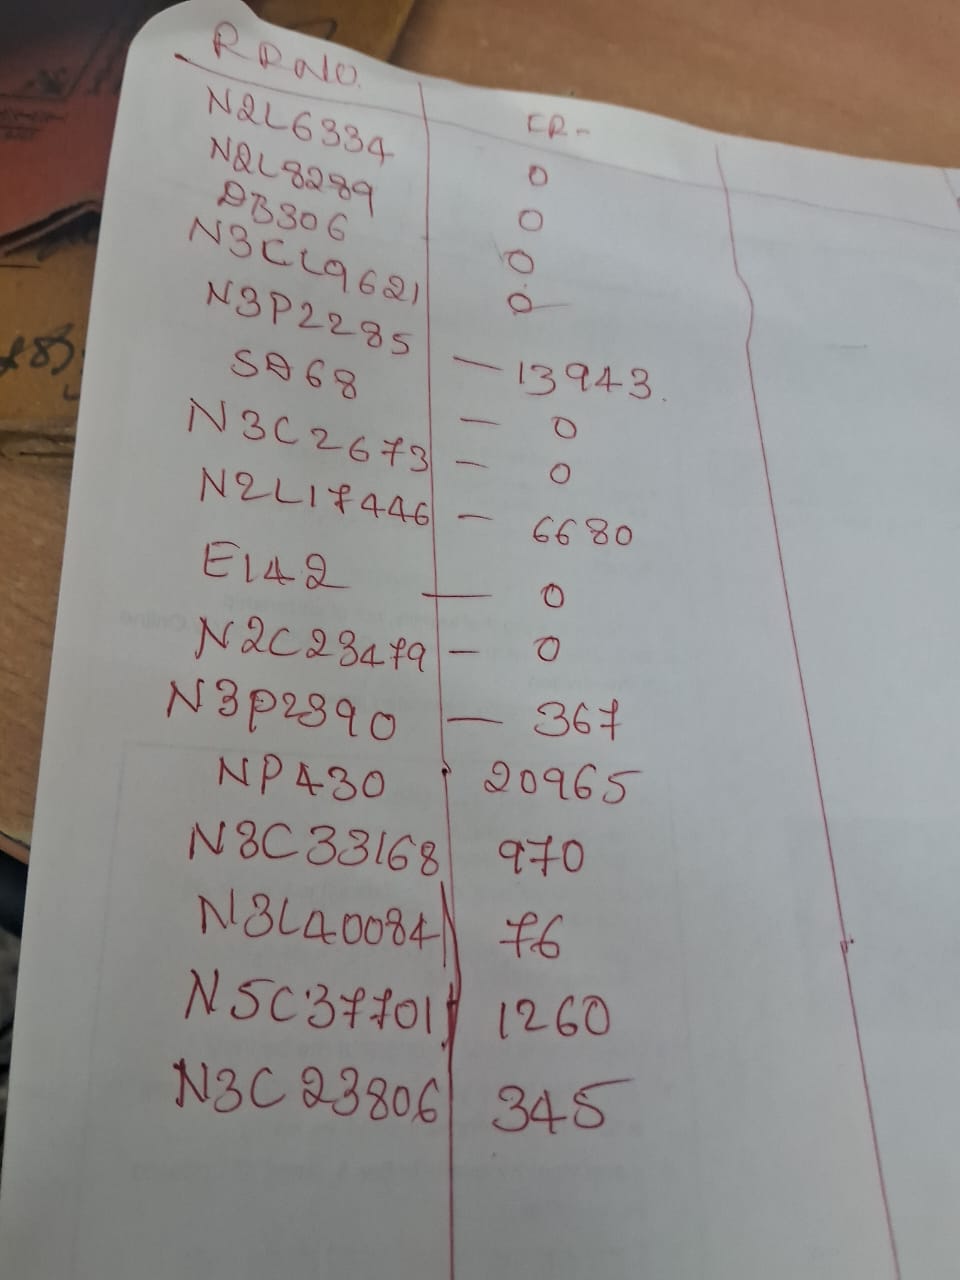 RRNO. FR-
N2L6334 0
N2L8289 0
DB306 0
N3CL9621 0
N3P2285 - 13943.
SD68 - 0
N3C2673 - 0
N2L17446 - 6680
E142 - 0
N2C23479 - 0
N3P2390 - 367
NP430 20965
N3C33168 970
N3L40084 76
N5C37701 1260
N3C23806 345